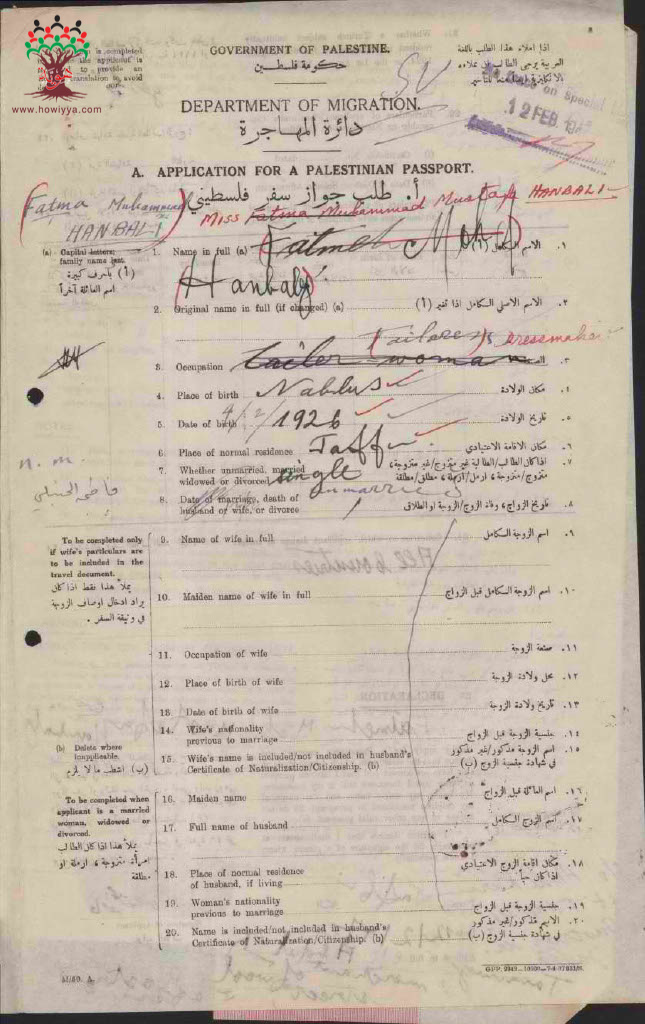 www.howiyya.com
GOVERNMENT OF PALESTINE.
حكومة فلسطين
اذا املاء هذا الطلب باللغة
العربية يرجى الطالب بان
12 FEB. 194
DEPARTMENT OF MIGRATION.
دائرة المهاجرة
A. APPLICATION FOR A PALESTINIAN PASSPORT.
أ. طلب جواز سفر فلسطيني
Fatma Muhammad HANBALI
MISS Fatma Muhammad Mustafa HANBALI
(a) Capital letters; family name last.
(أ) بأحرف كبيرة اسم العائلة آخراً
1. Name in full (a) Fatmeh Mohd ١. الاسم الكامل (أ)
Hanbaly
2. Original name in full (if changed) (a) ٢. الاسم الاصلي الكامل اذا تغير (أ)
dressmaker
3. Occupation tailer woman ٣.
4. Place of birth Nablus ٤. مكان الولادة
5. Date of birth 1926 ٥. تاريخ الولادة
6. Place of normal residence Jaffa ٦. مكان الاقامة الاعتيادي
7. Whether unmarried, married widowed or divorced single ٧. اذا كان الطالب/الطالبة غير متزوج/غير متزوجة، متزوج/متزوجة، ارمل/ارملة، مطلق/مطلقة
unmarried
n. m.
فاطمة الحنبلي
8. Date of marriage, death of husband or wife, or divorce ٨. تاريخ الزواج، وفاة الزوج/الزوجة او الطلاق
To be completed only if wife's particulars are to be included in the travel document.
يملأ هذا فقط اذا كان يراد ادخال اوصاف الزوجة في وثيقة السفر.
9. Name of wife in full ٩. اسم الزوجة الكامل
All Countries
10. Maiden name of wife in full ١٠. اسم الزوجة الكامل قبل الزواج
11. Occupation of wife ١١. صنعة الزوجة
12. Place of birth of wife ١٢. محل ولادة الزوجة
13. Date of birth of wife ١٣. تاريخ ولادة الزوجة
14. Wife's nationality previous to marriage ١٤. جنسية الزوجة قبل الزواج
(b) Delete where inapplicable.
(ب) اشطب ما لا يلزم
15. Wife's name is included/not included in husband's Certificate of Naturalization/Citizenship. (b) ١٥. اسم الزوجة مذكور/غير مذكور في شهادة جنسية الزوج (ب)
To be completed when applicant is a married woman, widowed or divorced.
يملأ هذا اذا كان الطالب امرأة متزوجة، ارملة او مطلقة
16. Maiden name ١٦. اسم العائلة قبل الزواج
17. Full name of husband ١٧. اسم الزوج الكامل
18. Place of normal residence of husband, if living ١٨. مكان اقامة الزوج الاعتيادي اذا كان حياً
19. Woman's nationality previous to marriage ١٩. جنسية الزوجة قبل الزواج
20. Name is included/not included in husband's Certificate of Naturalization/Citizenship. (b) ٢٠. الاسم مذكور/غير مذكور في شهادة جنسية الزوج (ب)
M/50. A.